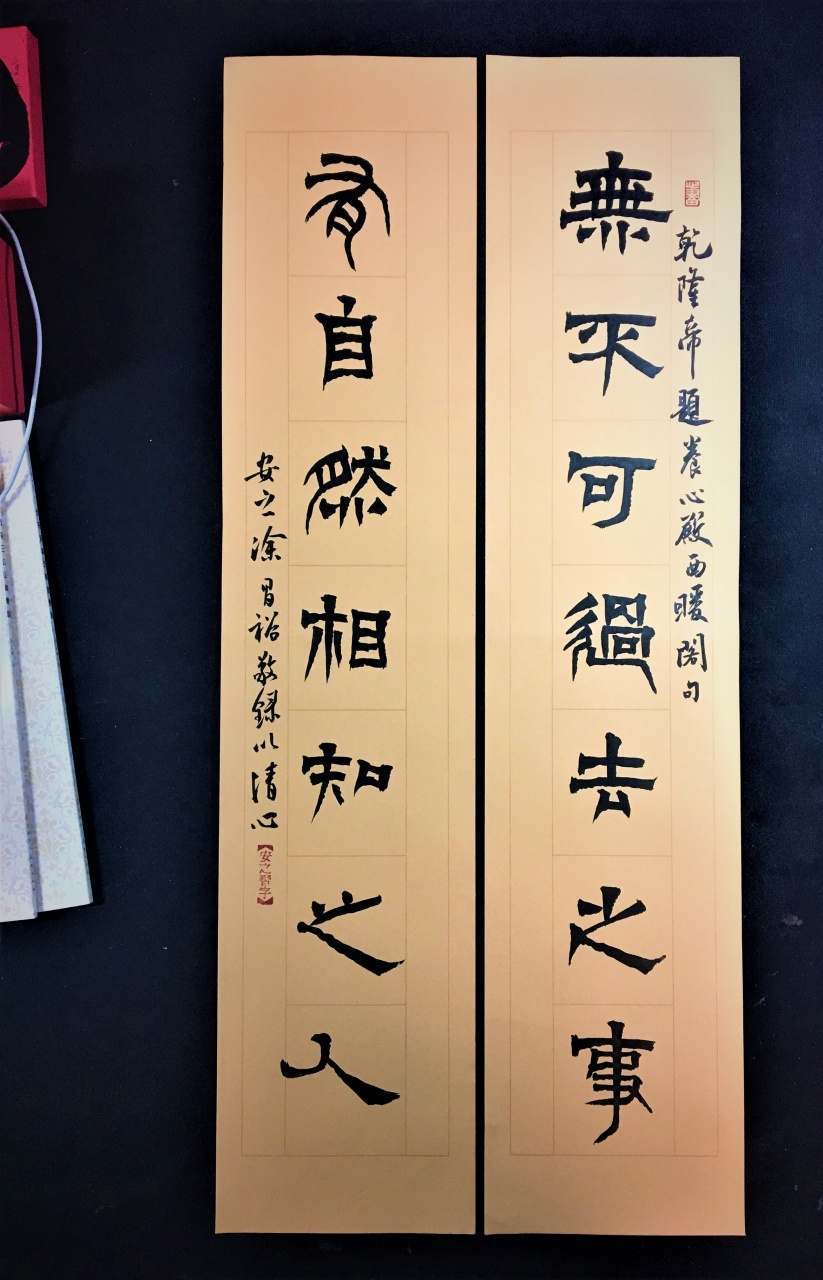 乾隆帝題養心殿西暖閣句
無不可過去之事
有自然相知之人
安之涂昌裕敬錄以清心
安之習字